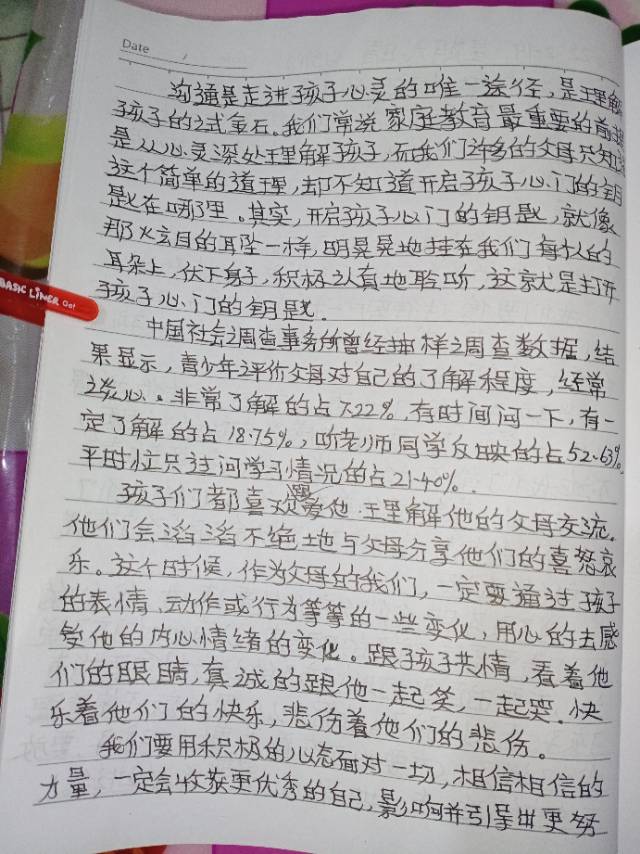 Date
沟通是走进孩子心灵的唯一途径，是理解
孩子的试金石。我们常说家庭教育最重要的前提
是从心灵深处理解孩子，而我们许多的父母只知道
这个简单的道理，却不知道开启孩子心门的钥
匙在哪里。其实，开启孩子心门的钥匙，就像
那炫目的耳坠一样，明晃晃地挂在我们每个人的
耳朵上，伏下身子，积极认真地聆听，这就是打开
孩子心门的钥匙.
BASIC LINER
中国社会调查事务所曾经抽样调查数据，结
果显示，青少年评价父母对自己的了解程度，经常
谈心。非常了解的占7.22%，有时间问一下，有一
定了解的占18.75%，听老师同学反映的占52.63%
平时仅只过问学习情况的占21.40%.
孩子们都喜欢跟爱他.理解他的父母交流.
他们会滔滔不绝地与父母分享他们的喜怒哀
乐。这个时候，作为父母的我们，一定要通过孩子
的表情、动作或行为等等的一些变化，用心的去感
受他的内心情绪的变化。跟孩子共情，看着他
们的眼睛，真诚的跟他一起笑，一起哭.快
乐着他们的快乐，悲伤着他们的悲伤。
我们要用积极的心态面对一切，相信相信的
力量，一定会收获更优秀的自己，影响并引导出更努